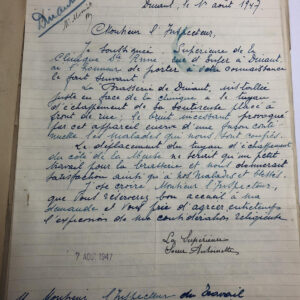 Dinant
Dinant, le 1r août 1947
Monsieur l'Inspecteur,
Je soussignée Supérieure de la
Clinique Ste Anne, rue d'Enfer à Dinant,
ai l'honneur de porter à votre connaissance
le fait suivant.
La Brasserie de Dinant, installée
juste en face de la clinique a le tuyau
d'échappement de sa placé à
front de rue; le bruit incessant provoqué
par cet appareil énerve d'une façon conti-
nuelle les malades qui nous sont confiés.
Le déplacement du tuyau d'échappement
du côté de la Meuse ne serait qu'un petit
travail pour la brasserie et nous donnerait
satisfaction ainsi qu'à nos malades et blessés.
J'ose croire, Monsieur l'Inspecteur,
que vous réserverez bon accueil à ma
demande et vous prie d'agréer entretemps
l'expression de ma considération religieuse
La Supérieure
Soeur Antoinette
7 AOU 1947
Monsieur l'Inspecteur du Travail